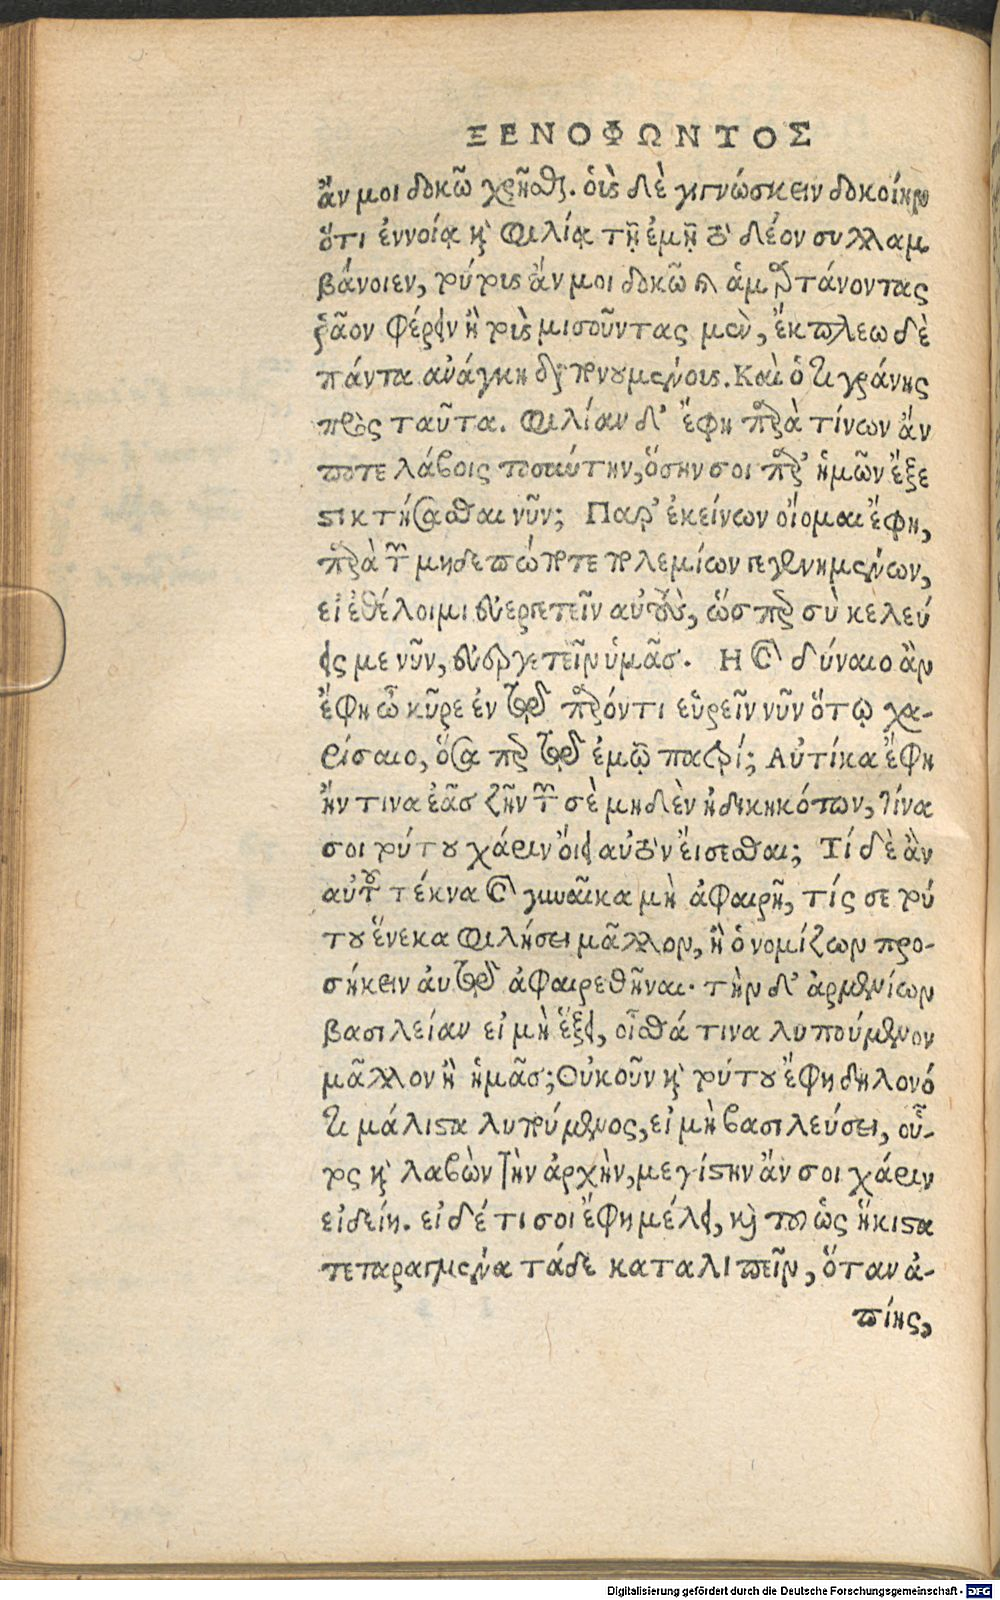 ΞΕΝΟΦΩΝΤΟΣ
ἄν μοι δοκῶ χρῆσθαι. οὓς δὲ γιγνώσκειν δοκοίην
ὅτι ἐννοίᾳ καὶ φιλίᾳ τῇ ἐμῇ τὸ δέον συλλαμ
βάνοιεν, τούτους ἄν μοι δοκῶ καὶ ἁμαρτάνοντας
ῥᾷον φέρειν ἢ τοὺς μισοῦντας μὲν, ἔκπλεω δὲ
πάντα ἀνάγκῃ διαπονουμένους. Καὶ ὁ τιγράνης
πρὸς ταῦτα. φιλίαν δ' ἔφη παρὰ τίνων ἄν
ποτε λάβοις τοσαύτην, ὅσην σοι παρ' ἡμῶν ἔξε
στι κτήσασθαι νῦν; Παρ' ἐκείνων οἴομαι ἔφη,
παρὰ τῶν μηδεπώποτε πολεμίων γεγενημένων,
εἰ ἐθέλοιμι εὐεργετεῖν αὐτοὺς, ὥσπερ σὺ κελεύ
εις με νῦν, εὐεργετεῖν ὑμᾶς. Η καὶ δύναιο ἂν
ἔφη ὦ κῦρε ἐν τῷ παρόντι εὑρεῖν νῦν ὅτῳ χα-
ρίσαιο, ὅσα περ τῷ ἐμῷ πατρί; Αὐτίκα ἔφη
ἤν τινα ἐᾷς ζῆν τῶν σὲ μηδὲν ἠδικηκότων, τίνα
σοι τούτου χάριν οἴει αὐτὸν εἴσεσθαι; Τί δὲ ἂν
αὐτοῦ τέκνα καὶ γυναῖκα μὴ ἀφαιρῇ, τίς σε τού
του ἕνεκα φιλήσει μᾶλλον, ἢ ὁ νομίζων προ-
σήκειν αὐτῷ ἀφαιρεθῆναι. τὴν δ' ἀρμενίων
βασιλείαν εἰ μὴ ἕξει, οἶσθά τινα λυπούμενον
μᾶλλον ἢ ἡμᾶς; Οὐκοῦν καὶ τούτου ἔφη δηλονό
τι μάλιστα λυπούμενος, εἰ μὴ βασιλεύσει, οὗ-
τος καὶ λαβὼν τὴν ἀρχὴν, μεγίστην ἄν σοι χάριν
εἰδείη. εἰ δέ τι σοι ἔφη μέλει, καὶ τοῦ ὡς ἥκιστα
τεταραγμένα τάδε καταλιπεῖν, ὅταν ἀ-
πίῃς,
Digitalisierung gefördert durch die Deutsche Forschungsgemeinschaft - DFG